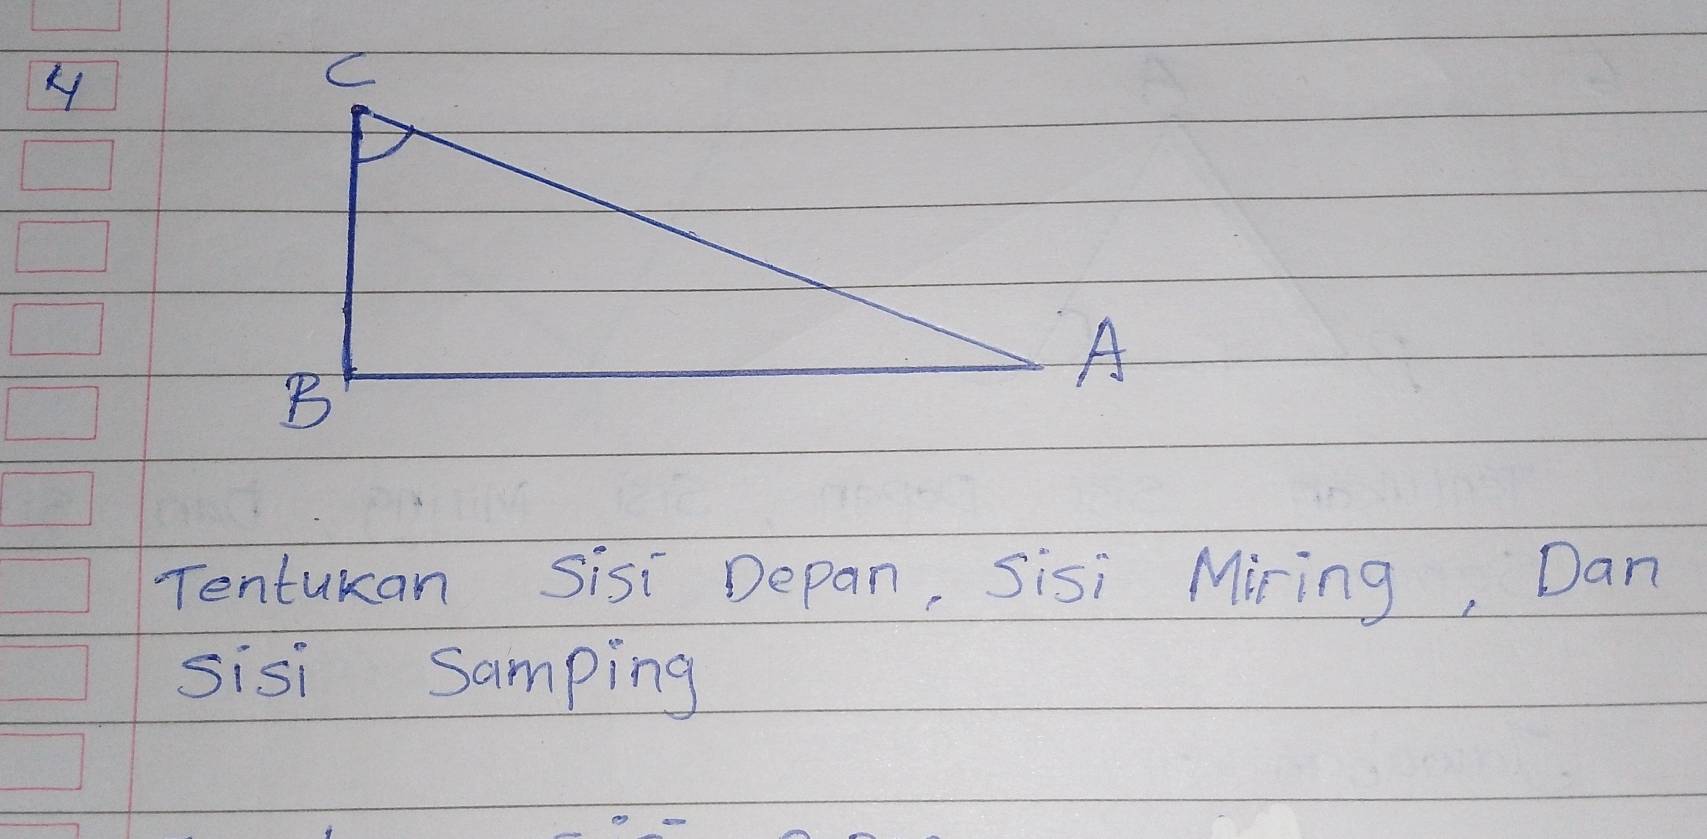 4
C
A
B
Tentukan Sisi Depan, Sisi Miring, Dan
Sisi Samping